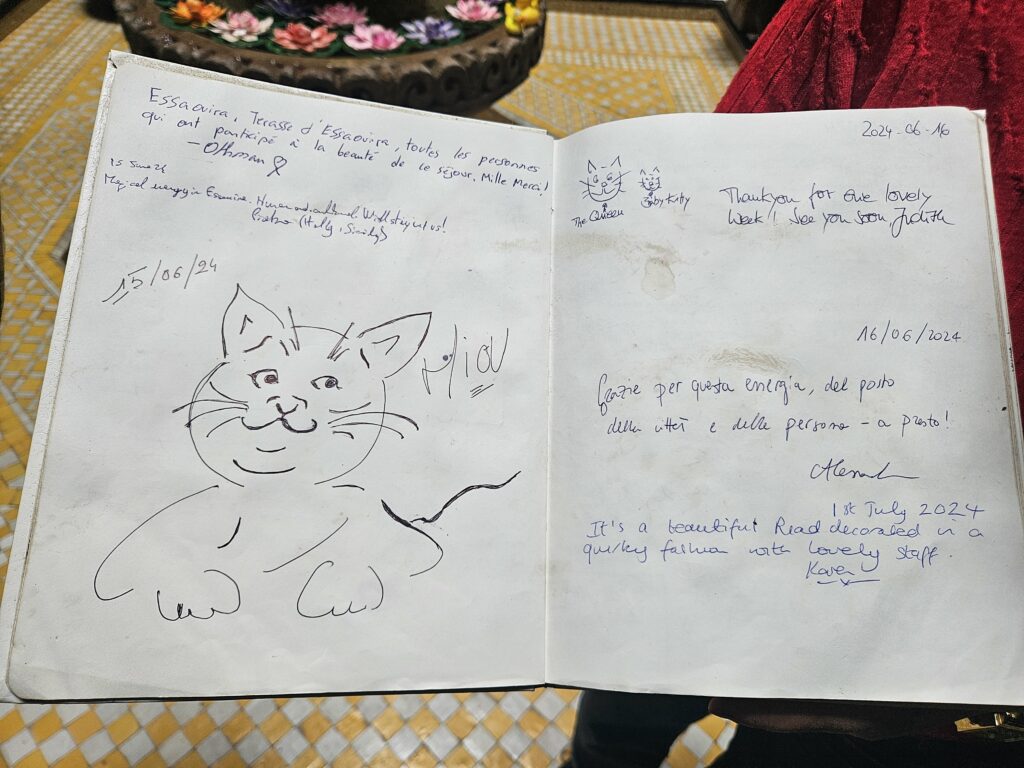 Essaouira, Terasse d'Essaouira, toutes les personnes
qui ont participé à la beauté de ce séjour. Mille Merci!
- Othman
15 June 24
Magical energy in Essaouira. Human and cultural. Will stay in us!
(Italy, Sicily)
15/06/24
Miou
2024-06-16
The Queen
Baby Kitty
Thankyou for our lovely
week! See you soon Judith
16/06/2024
Grazie per questa energia, del posto
della città e delle persone - a presto!
1st July 2024
It's a beautiful Read decorated in a
quirky fashion with lovely staff.
Karen